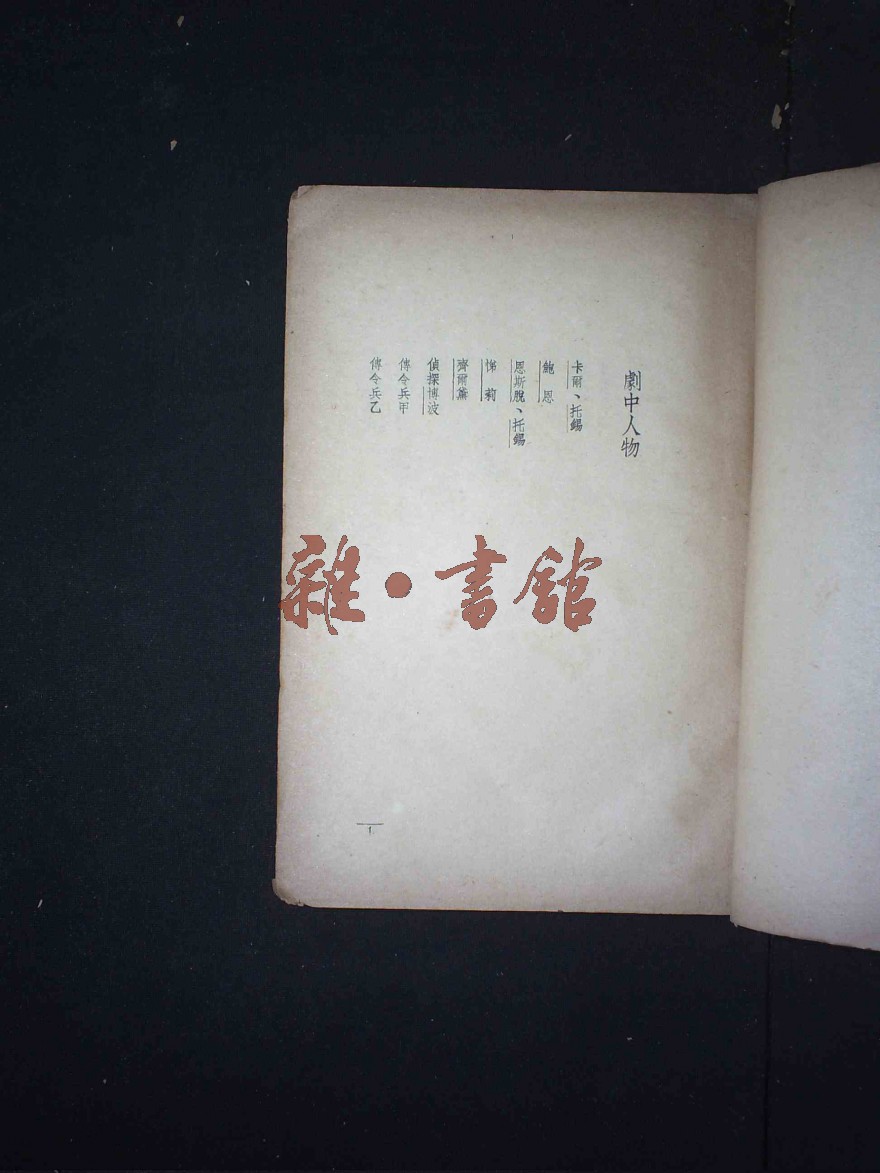 劇中人物
卡爾、托錫
鮑恩
恩斯脫、托錫
悌莉
齊爾黛
偵探博波
傳令兵甲
傳令兵乙
1
雜·書館